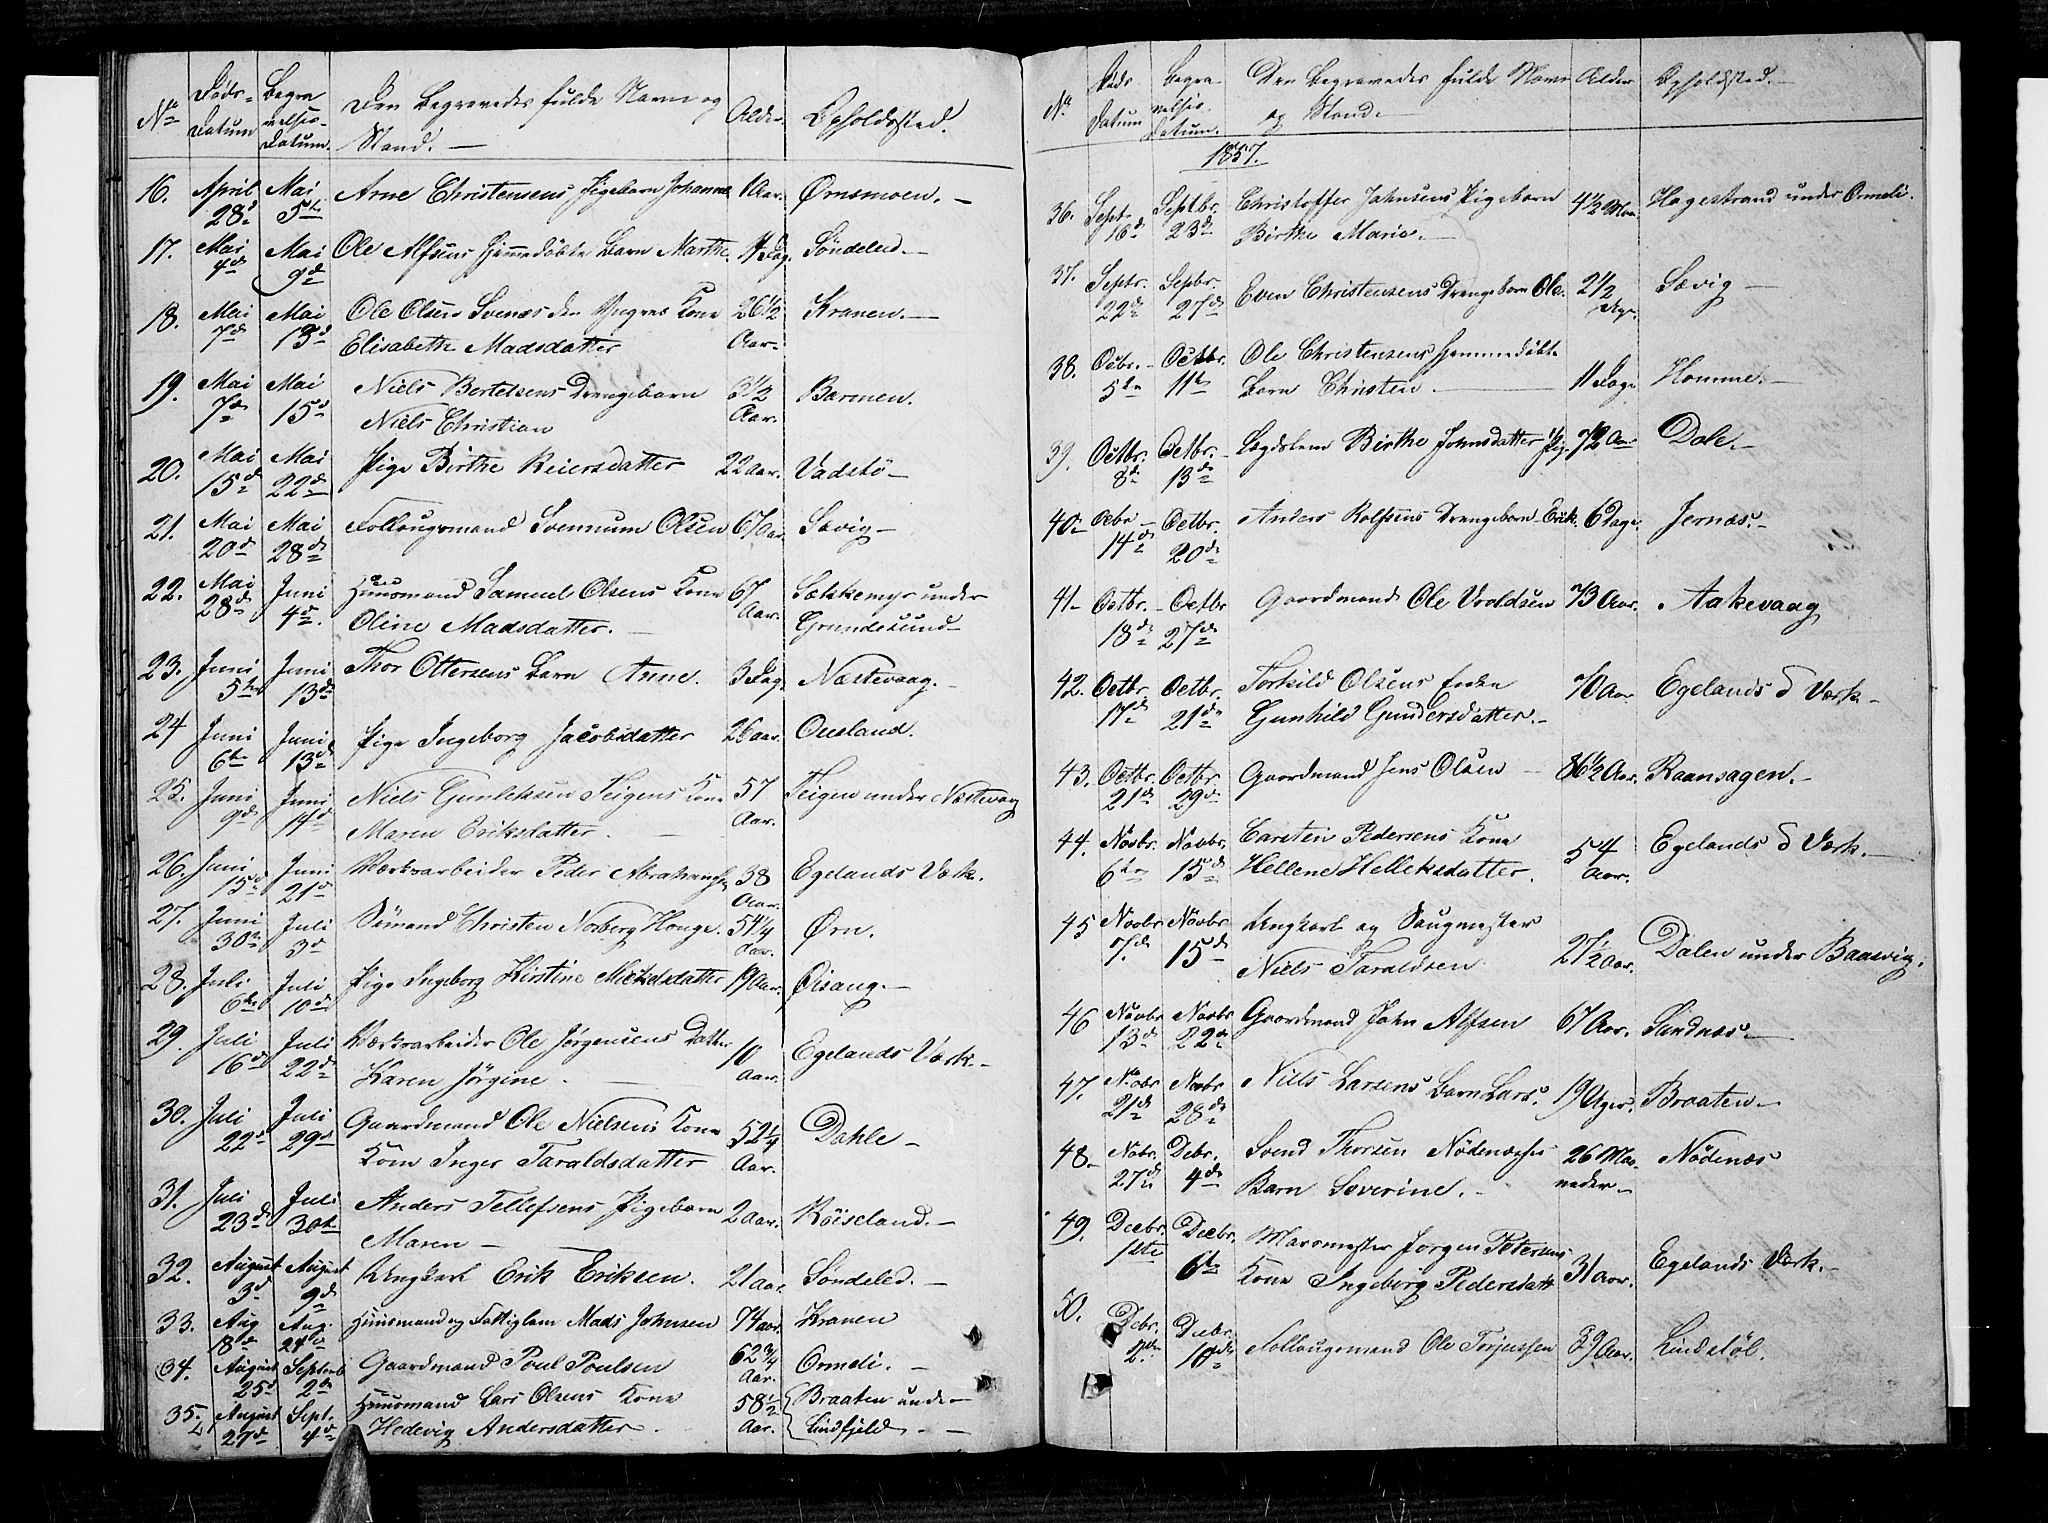 No Døds- Datum Begravelses- Datum. Den Begravedes fulde Navn og Stand. — Alder. Opholdssted.
16. April 28d Mai 5te Arne Christensens Pigebarn Johanne 1 Aar. Ørnsmoen. —
17. Mai 4d Mai 9d Ole Alfsens hjemmedøbte Barn Marthe. 4 Dag. Söndeled. —
18. Mai 7d Mai 13d Ole Olsen Svenæs den Yngres Kone 26 1/2 Kranen. —
Elisabeth Madsdatter Aar.
19. Mai 7d Mai 15d Niels Bertelsens Drengebarn 3 1/2 Barmen.
Niels Christian Aar.
20. Mai 15d Mai 22d Pige Birthe Reiersdatter 22 Aar. Vadstö —
21. Mai 20d Mai 28d Follaugsmand Svennum Olsen 67 Aar. Sævig —
22. Mai 28d Juni 4d. Huusmand Samuel Olsens Kone 67 Sækkemyr under
Oline Madsdatter. — Aar. Grundesund —
23. Juni 5te Juni 13d Thor Ottersens Barn Anne. 3 Dag. Næstevaag. —
24 Juni 6te Juni 13d Pige Ingeborg Jacobsdatter 26 Aar. Ousland.
25. Juni 9d Juni 14d Niels Gunleksen Teigens Kone 57 Teigen under Næstevaag
Maren Eriksdatter. — Aar.
26. Juni 15d Juni 21d Værksarbeider Peder Abrahamsen 38 Aar. Egelands Værk.
27. Juni 30te Juli 3d Sömand Christen Norberg Houge. 54 1/4 Aar. Ørn.
28. Juli 6te Juli 10d Pige Ingeborg Kirstine Mickelsdatter 19 Aar. Øisang. —
29. Juli 16d Juli 22d Værksarbeider Ole Jørgensens Datter 10 Egelands Værk. —
Karen Jörgine. — Aar.
30. Juli 22d Juli 29d Gaardmand Ole Nielsens Kone 52 1/4 Dahle —
Kone Inger Taraldsdatter Aar.
31. Juli 23d Juli 30te Anders Tellefsens Pigebarn 2 Aar. Röiseland. —
Maren —
32. August 3d August 9d Ungkarl Erik Eriksen. 21 Aar. Söndeled. —
33. Aug 18de Aug. Huusmand og Fattiglem Mads Johnsen 74 Aar. Kranen
34. August 25d Septemb 2de Gaardmand Poul Poulsen 62 3/4 Aar. Ormeli. —
35. August 27d Sept. 4d Huusmand Lars Olsens Kone 58 1/2 Braaten under
Hedevig Andersdatter. Aar. Lindfjeld. —
No Døds Datum Begravelses. Datum. Den Begravedes fulde Navn og Stand. — Alder Opholdssted. —
1857.
36. Sept. 16d Septbr. 23d Christoffer Jahnsens Pigebarn 4 1/2 Hagestrand under Ormeli.
Birthe Marie. —
37. Septbr. 22d Septbr. 27d Even Christensens Drengebarn Ole. 2 1/2 Sævig —
38. Octbr. 5te Octbr. 11te Ole Christensens hjemmedøbte
Barn Christen — 11 Dage Homme. —
39. Octbr. 8d Octbr. 13d Lægdslem Birthe Johnsdatter Dale. —
40 — Octbr 14d Octbr. 20d Anders Rolfsens Drengebarn Erik. 6 Dage. Jernæs. —
41 — Octbr. 18d Octbr 27d Gaardmand Ole Vraldsen 73 Aar. Aakevaag
42. Octbr. 17d Octbr. 21d Torkild Olsens Enke 70 Aar. Egelands Værk —
Gunhild Gundersdatter. —
43. Octbr. 21d Octbr. 29d Gaardmand Jens Olsen — 86 1/2 Aar. Raansagen. —
44. Novbr. 6te Novbr. 15d Carsten Pedersens Kone 54 Egelands Værk. —
Hellene Helleksdatter. Aar.
45 Novbr 7d. Novbr 15d Ungkarl og Saugmester
Niels Taraldsen 27 1/2 Aar. Dalen under Baasvig.
46 Novbr 13d Novbr 22d Gaardmand John Alfsen 67 Aar. Sandnæs. —
47. Novbr 21d Novbr 28d Niels Larsens Barn Lars. 19 Uger. Braaten. —
48. — Nobr. 27d Debr. 4d Svend Thorsen Nödenæs's 26 Maa- Nödenæs
Barn Severine. — neder. —
49. Decbr 1ste Decbr. 6te Masmester Jørgen Petersens
Kone Ingeborg Pedersdatt 31 Aar. Egelands Værk. —
50. Debr. 2den Decbr. 10de Follaugsmand Ole Terjussen 39 Aar. Lindstöl.